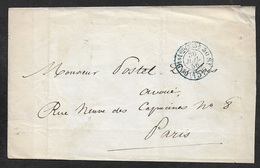 Monsieur Postel
avoué
Rue Neuve des Capucines Nº 8
Paris